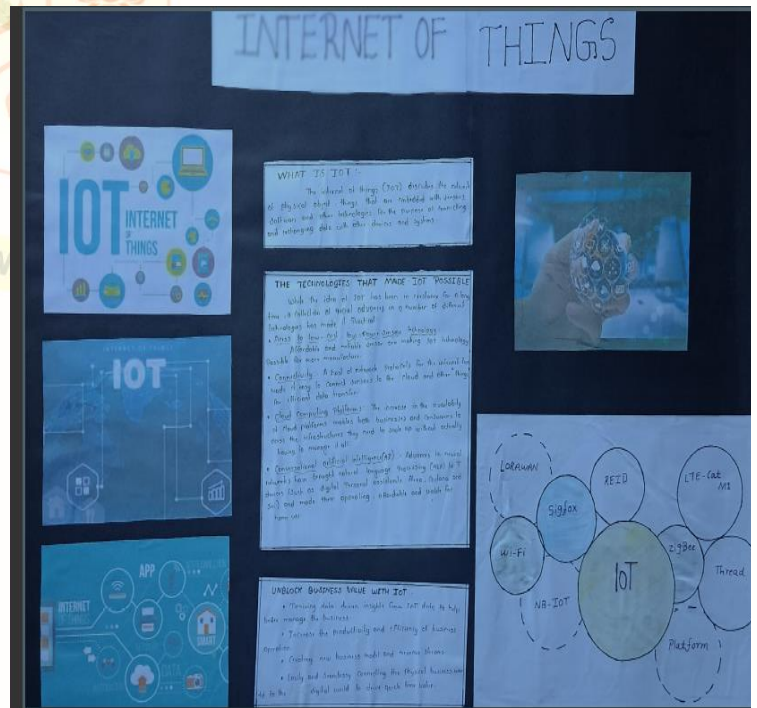 INTERNET OF THINGS
IOT INTERNET
OF
THINGS
INTERNET OF THINGS
IOT
APP
INTERNET
OF THINGS
SMART
DATA
WHAT IS IOT :-
The internet of things (IOT) describes the
of physical object things that are embedded with sensors,
software and other technologies for the purpose of connecting
and exchanging data with other devices and systems.
THE TECHNOLOGIES THAT MADE IOT POSSIBLE
While the idea of IOT has been in existence for a long
time, a collection of recent advances in a number of different
technologies has made it
• Access to low-cost, low-power sensor technology
Affordable and reliable sensor are making IOT technology
possible for more manufacturers.
• Connectivity: A host of network protocols for the internet has
made it easy to connect sensors to the cloud and other things
for efficient data transfer.
• Cloud Computing Platforms: The increase in the availability
of cloud platforms enables both businesses and consumers to
access the infrastructure they need to scale up without actually
having to manage it all.
• Conversational artificial intelligence(AI) :- Advances in neural
networks have brought natural language processing (NLP) to IOT
devices (such as digital personal assistants Alexa, Cortana and
Siri) and made them appealing, affordable and viable for
home use.
UNBLOCK BUSINESS VALUE WITH IOT
• data-driven insights from IOT data to help
better manage the business.
• Increase the productivity and efficiency of business
operation.
• Creating new business model and revenue streams
• Easily and seamlessly connecting the physical business
to the digital world to drive quick time
LORAWAN
REID
LTE-Cat
M1
Sigfox
Wi-Fi
IOT
zigbee
Thread
NB-IOT
Platform